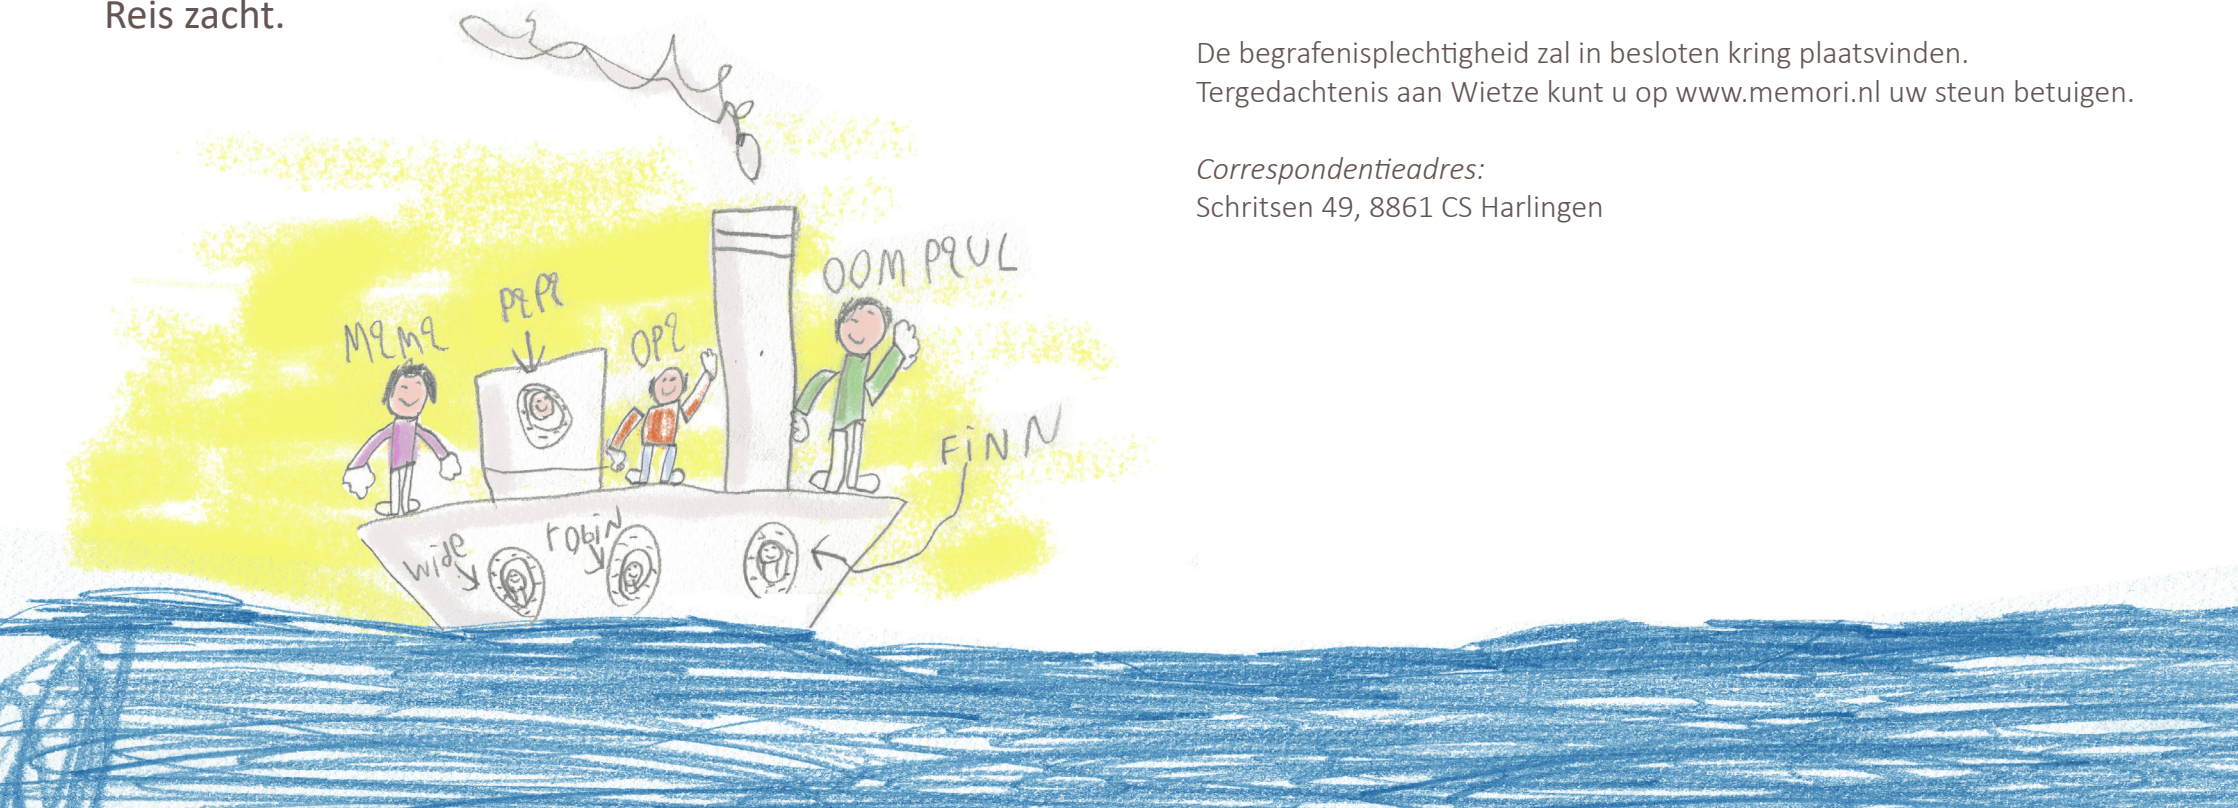 Reis zacht.
De begrafenisplechtigheid zal in besloten kring plaatsvinden.
Tergedachtenis aan Wietze kunt u op www.memori.nl uw steun betuigen.
Correspondentieadres:
Schritsen 49, 8861 CS Harlingen
OOM PaUL
PaPa
MaMa
OPa
FiNN
wide
robiN